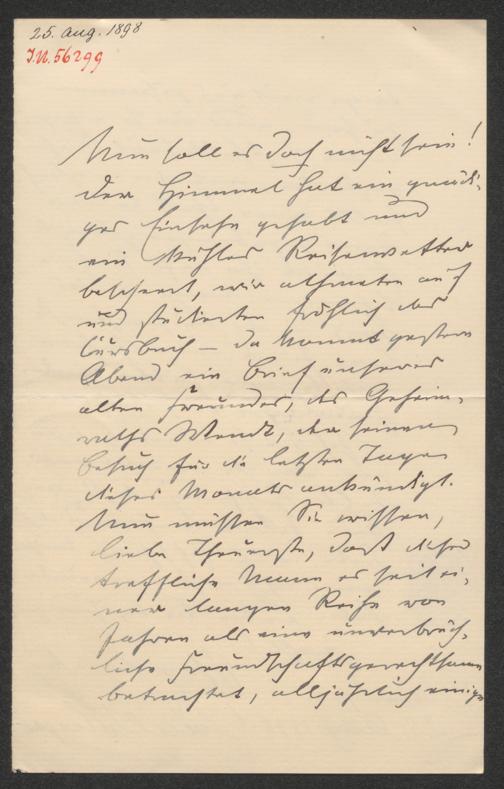 25. Aug. 1898
I.N. 56299
Nun soll es doch nicht sein!
Der Himmel hat ein gnädi-
ges Einsehn gehabt und
ein kühles Reisewetter
bescheert, wir athmeten auf
und studierten fröhlich das
Cursbuch – da kommt gestern
Abend ein Brief unseres
alten Freundes, des Geheim-
raths Wendt, der seinen
Besuch für die letzten Tage
dieses Monats ankündigt.
Nun müssen Sie wissen,
liebe Theuerste, daß dieser
treffliche Mann es seit ei-
ner langen Reihe von
Jahren als eine unverbrüch-
liche Freundschaftsgerechtsame
betrachtet, alljährlich einige